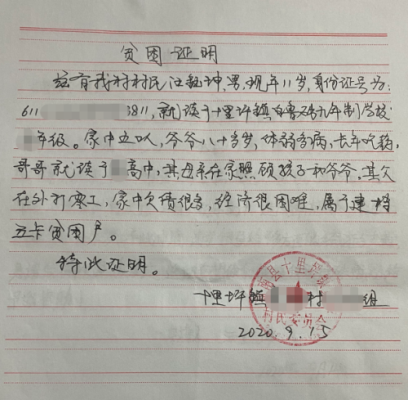 贫困证明
兹有我村村民江 坤,男,现年11岁,身份证号为:
611 3811,就读于十里坪镇白鲁础九年制学校
年级。家中五口人,爷爷八十多岁,体弱多病,长年吃药,
哥哥就读于 高中,其母亲在家照顾孩子和爷爷,其父
在外打零工,家中欠债很多,经济很困难,属于建档
立卡贫困户。
特此证明。
十里坪镇 村 组
2020.9.15
南县十里坪镇
村民委员会